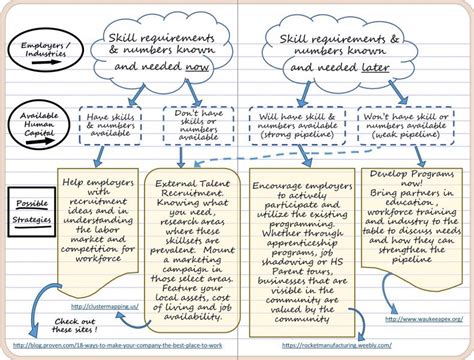 Employers /
Industries
Skill requirements
& numbers known
and needed now
Skill requirements &
numbers known
and needed later
Available
Human
Capital
Have skills
& numbers
available
Don't have
skills or
numbers
available
Will have skill &
numbers available
(strong pipeline)
Won't have skill or
numbers available
(weak pipeline)
Possible
Strategies
Help employers
with
recruitment
ideas and in
understanding
the labor
market and
competition for
workforce
External Talent
Recruitment.
Knowing what
you need,
research areas
where these
skillsets are
prevalent. Mount
a marketing
campaign in
those select areas.
Feature your
local assets, cost
of living and job
availability.
Encourage employers
to actively
participate and
utilize the existing
programming.
Whether through
apprenticeship
programs, job
shadowing or HS
Parent tours,
businesses that are
visible in the
community are
valued by the
community
Develop Programs
now!
Bring partners in
education,
workforce training
and industry to the
table to discuss needs
and how they can
strengthen the
pipeline
http://clustermapping.us/
Check out
these sites!
http://blog.proven.com/18-ways-to-make-your-company-the-best-place-to-work
http://www.waukeeapex.org/
https://rocketmanufacturing.weebly.com/